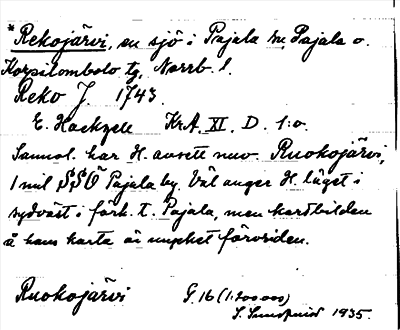 * Rekojärvi, en sjö i Pajala sn, Pajala o.
Korpilombolo tg, Norrb. l.
Reko J. 1743.
E. Hackzell KrA. XI. D. 1:o.
Sannol. har H. avsett nuv. Ruokojärvi,
1 mil SSÖ Pajala by. Väl anger H. läget i
sydväst i förh. t. Pajala, men kartbilden
å hans karta är mycket förvriden.
Ruokojärvi G. 16 (1:200 000)
S. Sundqvist 1935.